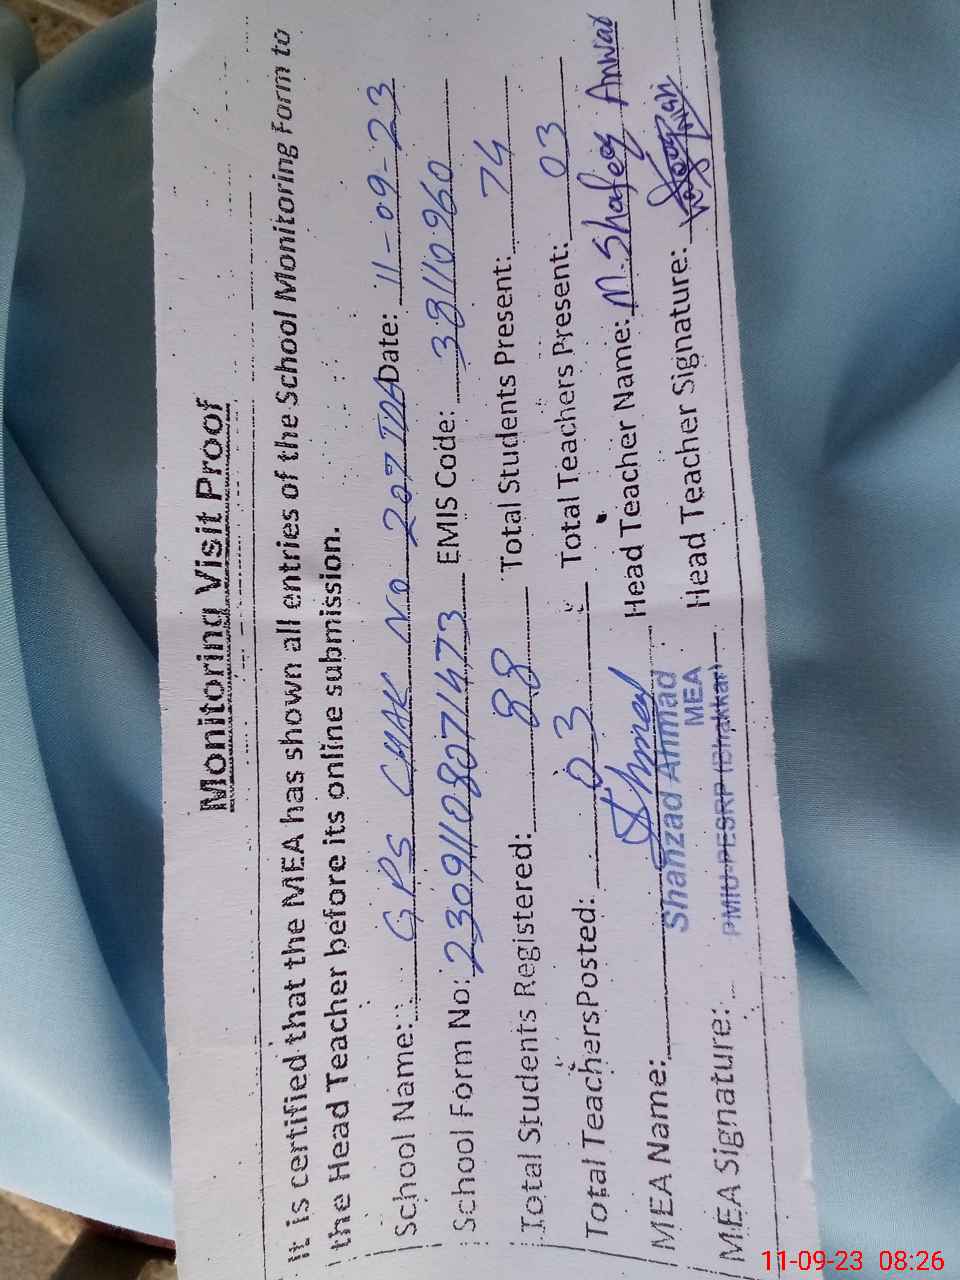 Monitoring Visit Proof
It is certified that the MEA has shown all entries of the School Monitoring Form to
the Head Teacher before its online submission.
School Name: GPS CHAK No 207 TDA Date: 11-09-23
School Form No: 23091108071473 EMIS Code: 38110960
Total Students Registered: 88 Total Students Present: 74
Total Teachers Posted: 03 Total Teachers Present: 03
MEA Name: Head Teacher Name: M. Shafeeq Anwar
Shahzad Ahmad
MEA
MEA Signature: Head Teacher Signature:
PMIU-PESRP (Bhakkar)
11-09-23 08:26